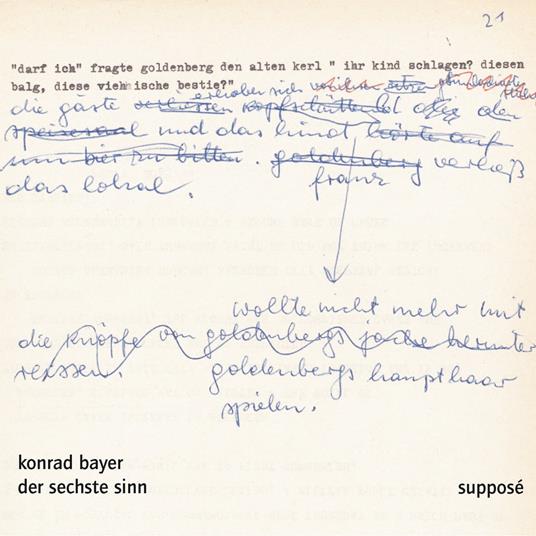 21
"darf ich" fragte goldenberg den alten kerl " ihr kind schlagen? diesen
balg, diese viehische bestie?"
erhoben sich
die gäste verliessen kopfschüttelnd den
speisesaal und das kind hörte auf
um bier zu bitten. goldenberg verließ
das lokal. franz
wollte nicht mehr mit
die knöpfe von goldenbergs jacke herunter
reissen. goldenbergs haupthaar
spielen.
konrad bayer
der sechste sinn
supposé